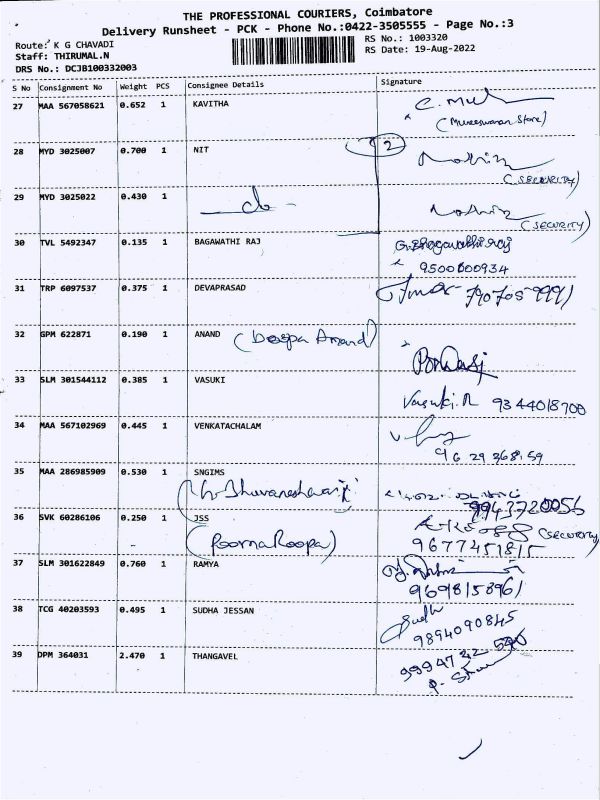 THE PROFESSIONAL COURIERS, Coimbatore
Delivery Runsheet - PCK - Phone No.:0422-3505555 - Page No.:3
Route: K G CHAVADI
RS No.: 1003320
Staff: THIRUMAL.N
RS Date: 19-Aug-2022
DRS No.: DCJB100332003
S No Consignment No Weight PCS Consignee Details Signature
27 MAA 567058621 0.652 1 KAVITHA
(Muneeswaran Store)
28 MYD 3025007 0.700 1 NIT 2
(SECURITY)
29 MYD 3025022 0.430 1
(SECURITY)
30 TVL 5492347 0.135 1 BAGAWATHI RAJ G.Bhagavathi raj
9500600934
31 TRP 6097537 0.375 1 DEVAPRASAD
32 GPM 622871 0.190 1 ANAND (Deepa Anand)
33 SLM 301544112 0.385 1 VASUKI
Vasuki.R 9344018700
34 MAA 567102969 0.445 1 VENKATACHALAM
96 29 368 59
35 MAA 286985909 0.530 1 SNGIMS
9943720056
36 SVK 60286106 0.250 1 JSS
(security)
(PoornaRoopa) 9677451815
37 SLM 301622849 0.760 1 RAMYA
9698158961
38 TCG 40203593 0.495 1 SUDHA JESSAN Sudh
9894090845
39 DPM 364031 2.470 1 THANGAVEL